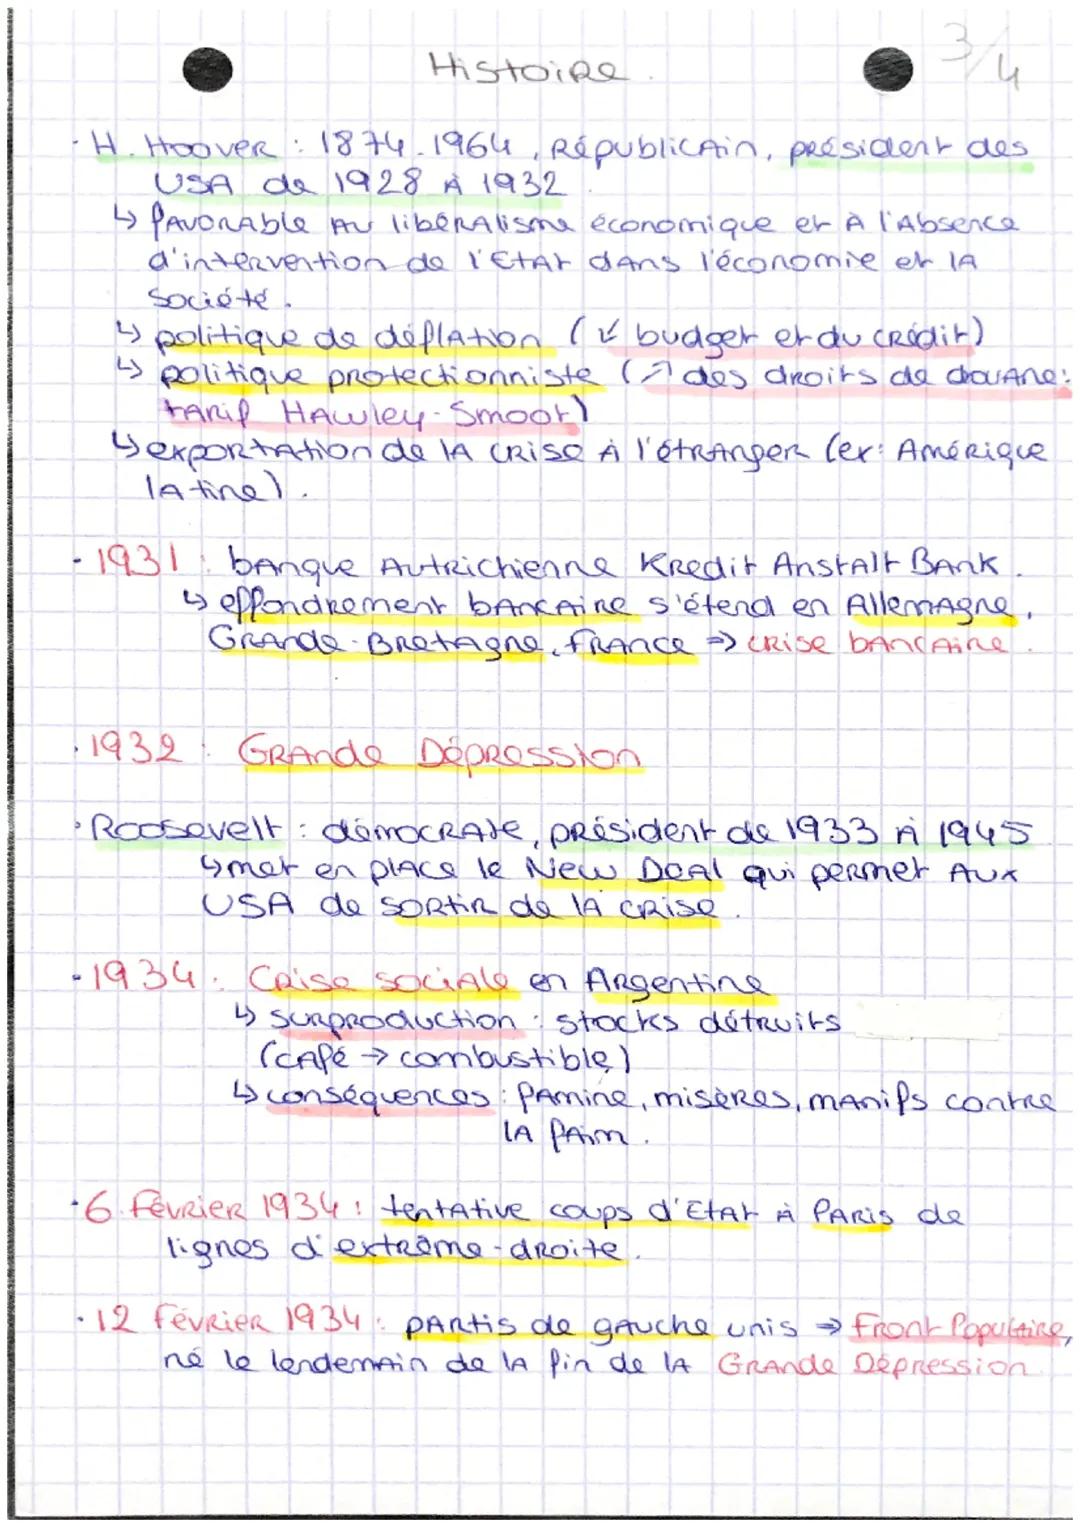 Histoire.
3/4
· H. Hoover : 1874-1964, Républicain, président des
USA de 1928 à 1932.
↳ favorable au libéralisme économique et à l'absence
d'intervention de l'Etat dans l'économie et la
société.
↳ politique de déflation (↙ budget et du crédit)
↳ politique protectionniste (↗ des droits de douane:
tarif Hawley-Smoot)
↳ exportation de la crise à l'étranger (ex: Amérique
latine).
· 1931 : banque autrichienne Kredit Anstalt Bank.
↳ effondrement bancaire s'étend en Allemagne,
Grande-Bretagne, France ⇒ crise bancaire.
· 1932 : Grande Dépression
· Roosevelt : démocrate, président de 1933 à 1945
↳ met en place le New Deal qui permet aux
USA de sortir de la crise.
· 1934 : Crise sociale en Argentine
↳ surproduction : stocks détruits
(café → combustible)
↳ conséquences : famine, misères, manifs contre
la faim.
· 6 février 1934 : tentative coups d'Etat à Paris de
lignes d'extrême-droite.
· 12 février 1934 : partis de gauche unis ⇒ Front Populaire,
né le lendemain de la fin de la Grande Dépression.